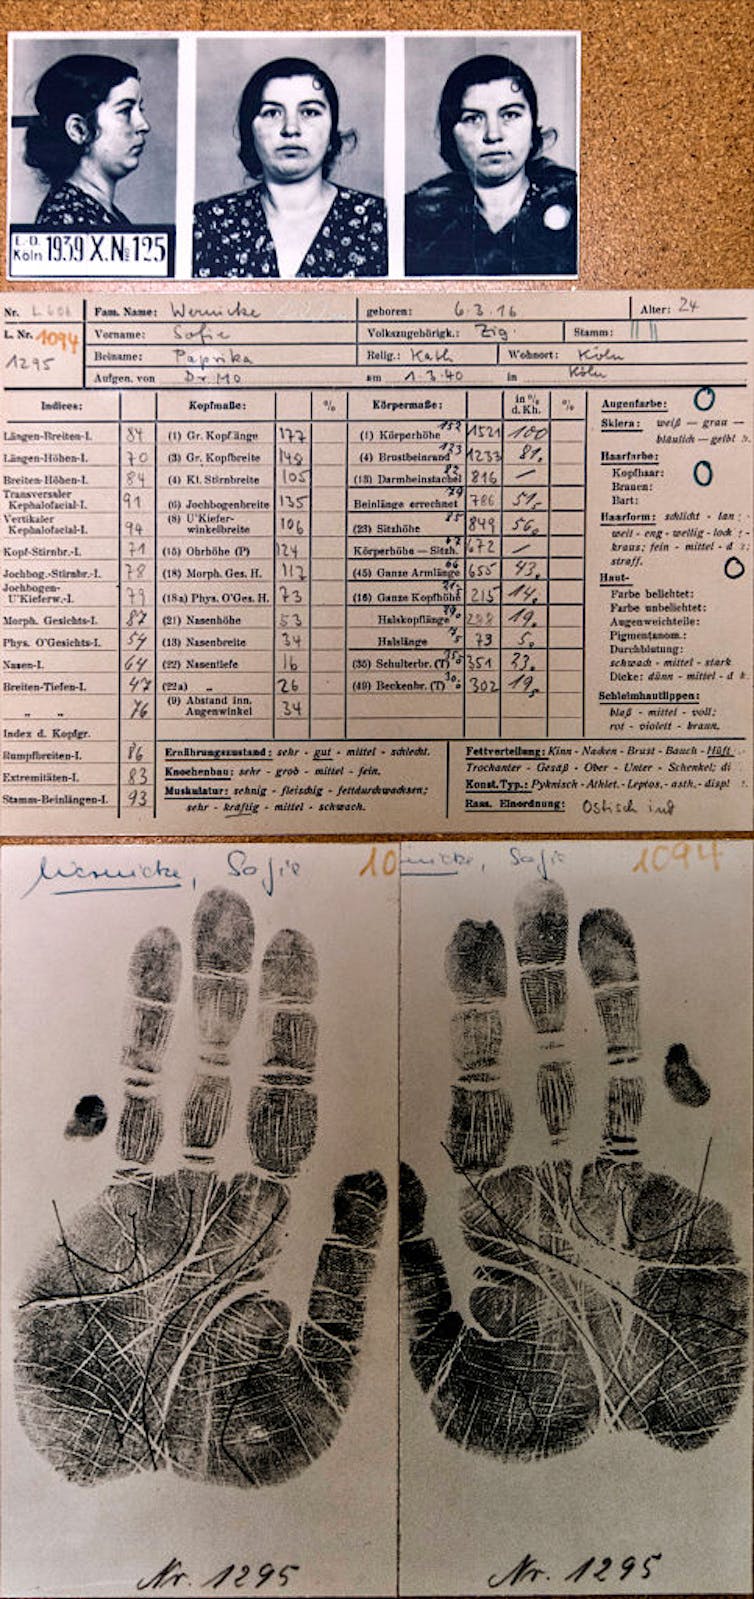 L.-D.
Köln 1939 X. No 125
Nr. Fam. Name: Wernicke geboren: 6.3.16 Alter: 24
L. Nr. 1094 Vorname: Sofie Volkszugehörigk.: Zig. Stamm:
1295 Beiname: Paprika Relig.: Kath Wohnort: Köln
Aufgen. von Dr. Mo am 1.3.40 in Köln
Indices: Kopfmaße: % Körpermaße: in % d. Kh. % Augenfarbe:
Längen-Breiten-I. 84 (1) Gr. Kopflänge 177 (1) Körperhöhe 152 1521 100 Sklera: weiß — grau —
bläulich — gelbl
Längen-Höhen-I. 70 (3) Gr. Kopfbreite 148 (4) Brustbeinrand 123 1233 81. Haarfarbe:
Breiten-Höhen-I. 84 (4) Kl. Stirnbreite 105 (13) Darmbeinstachel 82 816 — Kopfhaar:
Brauen:
Transversaler Kephalofacial-I. 91 (6) Jochbogenbreite 135 Beinlänge errechnet 79 786 51. Bart:
Vertikaler Kephalofacial-I. 94 (8) U'Kiefer-winkelbreite 106 (23) Sitzhöhe 85 849 56. Haarform: schlicht - lan
weit - eng - wellig - lock
Kopf-Stirnbr.-I. 71 (15) Ohrhöhe (P) 124 Körperhöhe — Sitzh. 67 672 — kraus; fein - mittel - d
straff.
Jochbog.-Stirnbr.-I. 78 (18) Morph. Ges. H. 117 (45) Ganze Armlänge 66 655 43. Haut-
Jochbogen-U'Kieferw.-I. 79 (18a) Phys. O'Ges. H. 73 (16) Ganze Kopfhöhe 215 14. Farbe belichtet:
Farbe unbelichtet:
Morph. Gesichts-I. 87 (21) Nasenhöhe 53 Halskopflänge 288 19. Augenweichteile:
Pigmentanom.:
Phys. O'Gesichts-I. 54 (13) Nasenbreite 34 Halslänge 73 5. Durchblutung:
schwach - mittel - stark
Nasen-I. 64 (22) Nasentiefe 16 (35) Schulterbr. (T) 351 23. Dicke: dünn - mittel - d
Breiten-Tiefen-I. 47 (22a) „ 26 (40) Beckenbr. (T) 302 19. Schleimhautlippen:
„ „ 76 (9) Abstand inn. Augenwinkel 34 blaß - mittel - voll;
rot - violett - braun.
Index d. Kopfgr.
Rumpfbreiten-I. 86 Ernährungszustand: sehr - gut - mittel - schlecht. Fettverteilung: Kinn - Nacken - Brust - Bauch - Hüft
Knochenbau: sehr - grob - mittel - fein. Trochanter - Gesäß - Ober - Unter - Schenkel; di
Extremitäten-I. 83 Muskulatur: sehnig - fleischig - fettdurchwachsen; Konst.Typ.: Pyknisch - Athlet. - Leptos. - asth. - displ
Stamm-Beinlängen-I. 93 sehr - kräftig - mittel - schwach. Rass. Einordnung: Ostisch ind
Wernicke, Sofie 10
nicke, Sofie 1094
Nr. 1295
Nr. 1295